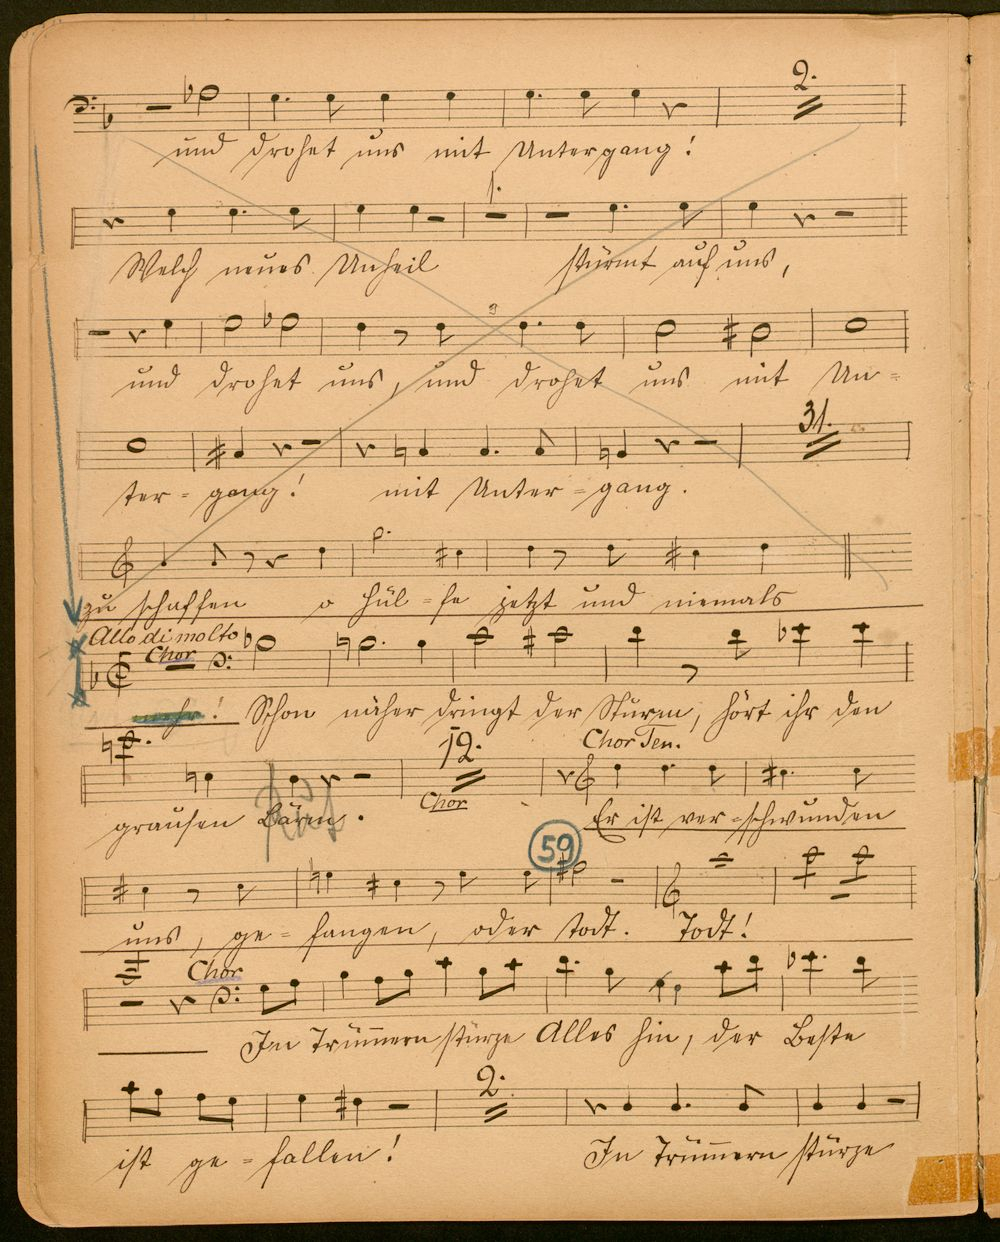 2.
und drohet uns mit Untergang!
1.
Welch neues Unheil stürmt auf uns,
und drohet uns, und drohet uns mit Un-
31.
ter-gang! mit Unter-gang.
zu schaffen o Hül-fe jetzt und niemals
Allo di molto
Chor
mehr! Schon näher dringt der Sturm, hört ihr den
12. Chor Ten.
grausen Lärm. Chor Er ist ver-schwunden
59
uns, ge-fangen, oder todt. Todt!
Chor
In Trümmern stürze Alles hin, der Beste
2.
ist ge-fallen! In Trümmern stürze